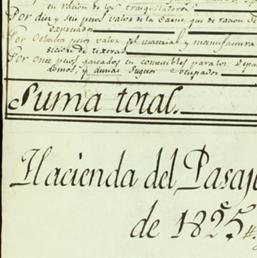 en racion de los trasquiladores
Por diez y seis pesos valor de la Carne que de racion se
Por Ochenta pesos valor del material y manufactura
Por once pesos gastados en comestibles para los
y demas Sugetos ocupados
Suma total.
Hacienda del Pasaje
de 1825